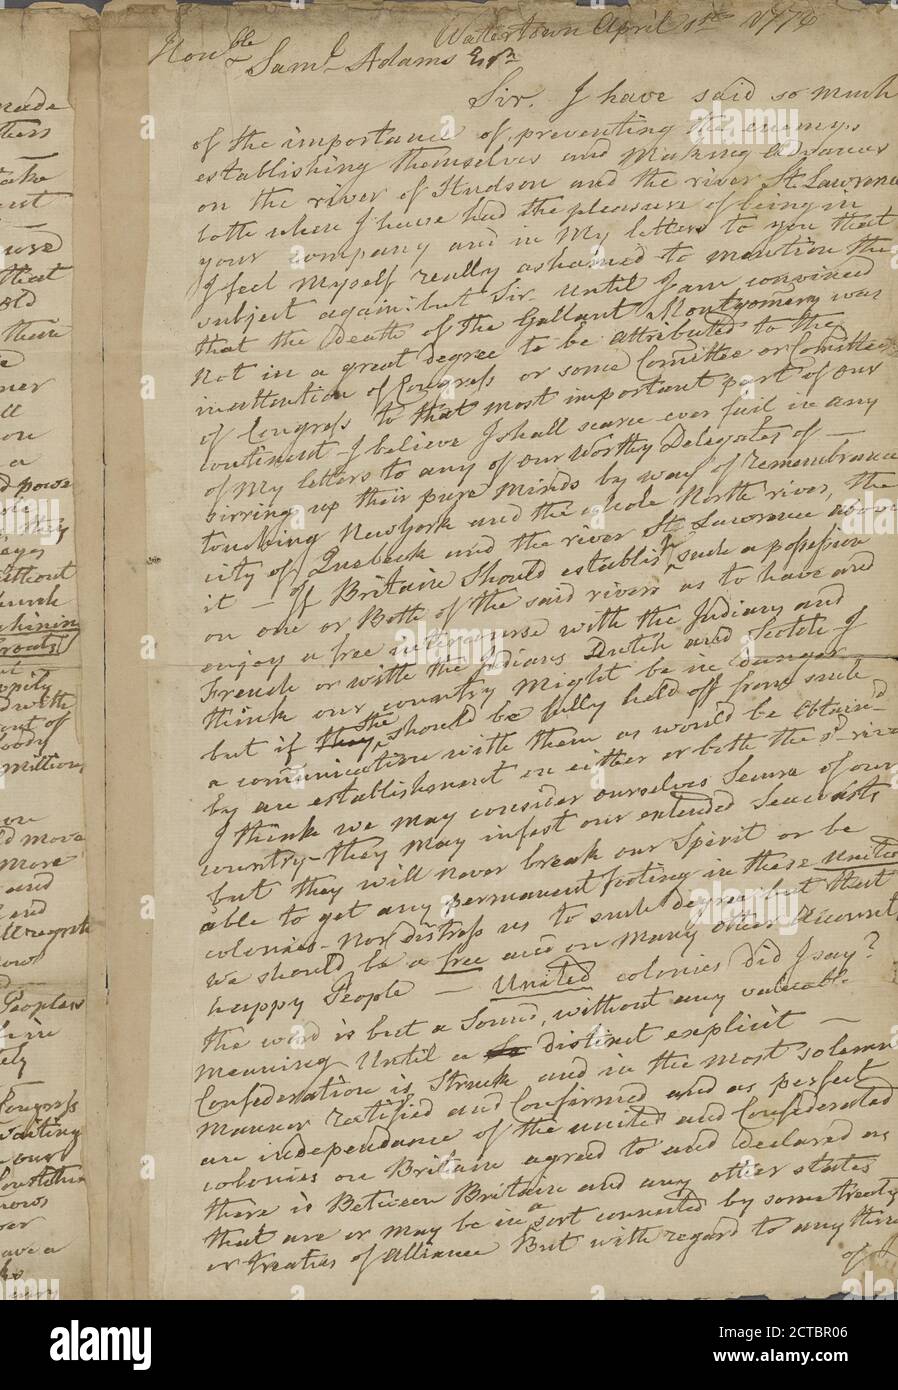 Watertown April 1st 1776
Honble
Saml Adams Esqr
Sir. I have said so much
of the importance of preventing the enemys
establishing themselves and Making Advances
on the river of Hudson and the river St. Lawrence
both when I have had the pleasure of being in
your company and in My letters to you that
I feel Myself really ashamed to mention the
subject again: but Sir. Until I am convinced
that the Death of the Gallant Montgomery was
Not in a great degree to be attributed to the
inattention of Congress or some Comittee or Comittees
of Congress to that most important part of our
continent - I believe I shall scarce ever fail in any
of My letters to any of our Worthy Delegates of -
stirring up their pure Minds by way of remembrance
touching Newyork and the whole North river, the
city of Quebeck and the river St. Lawrence above
it - If Britain should establish such a possession
on one or Both of the said rivers as to have and
enjoy a free intercourse with the Indians and
French or with the Indians Dutch and Scotch I
think our country Might be in Danger
but if they she should be fully held off from such
a comunication with them as would be obtain'd
by an establishment on either or both the sd. rivers
I think we may consider ourselves Secure of our
country - they may infest our extended Seacoasts
but they will never break our Spirit or be
able to get any permanent footing in these United
colonies - nor distress us to such degree but that
we should be a free and on many other Accounts
happy People - United colonies did I say?
the word is but a Sound, without any valuable
meaning Until a distinct explicit -
Confederation is Struck and in the most solemn
Manner ratified and Confirmed and as perfect
an independance of the united and Confederated
colonies on Britain agreed to and Declared as
there is Between Britain and any other states
that are or may be in a sort connected by some treaty
or treaties of Alliance But with regard to any
of
made
take
that
old
there
a
without
church
Million
more
and
Peoples
Congress
waiting
our
have a
alamy
Image ID: 2CTBR06
www.alamy.com